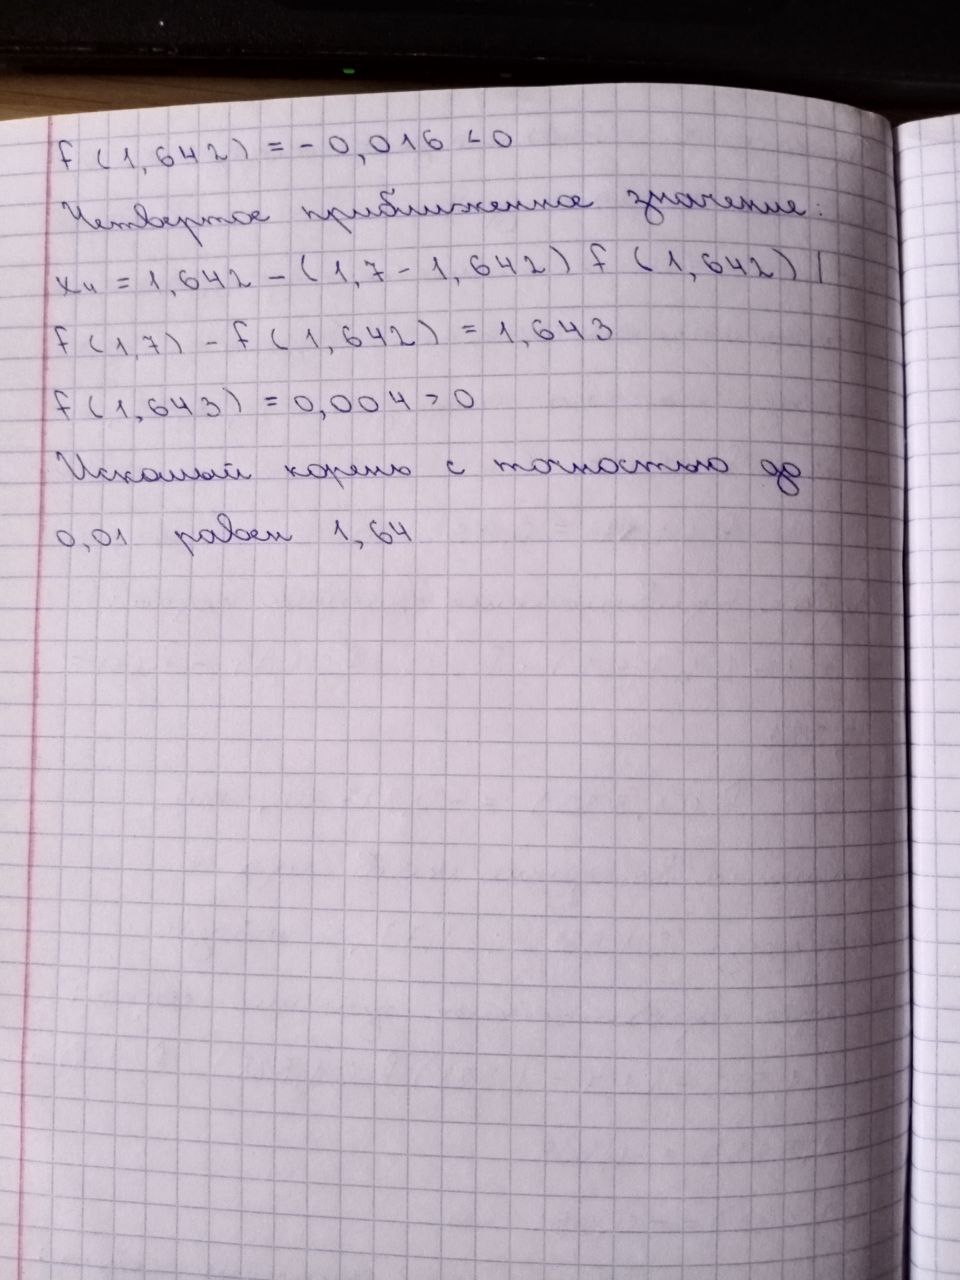 f(1,642) = -0,016 < 0
Четвертое приближенное значение:
x₄ = 1,642 - (1,7 - 1,642) f (1,642) |
f(1,7) - f(1,642) = 1,643
f(1,643) = 0,004 > 0
Искомый корень с точностью до
0,01 равен 1,64